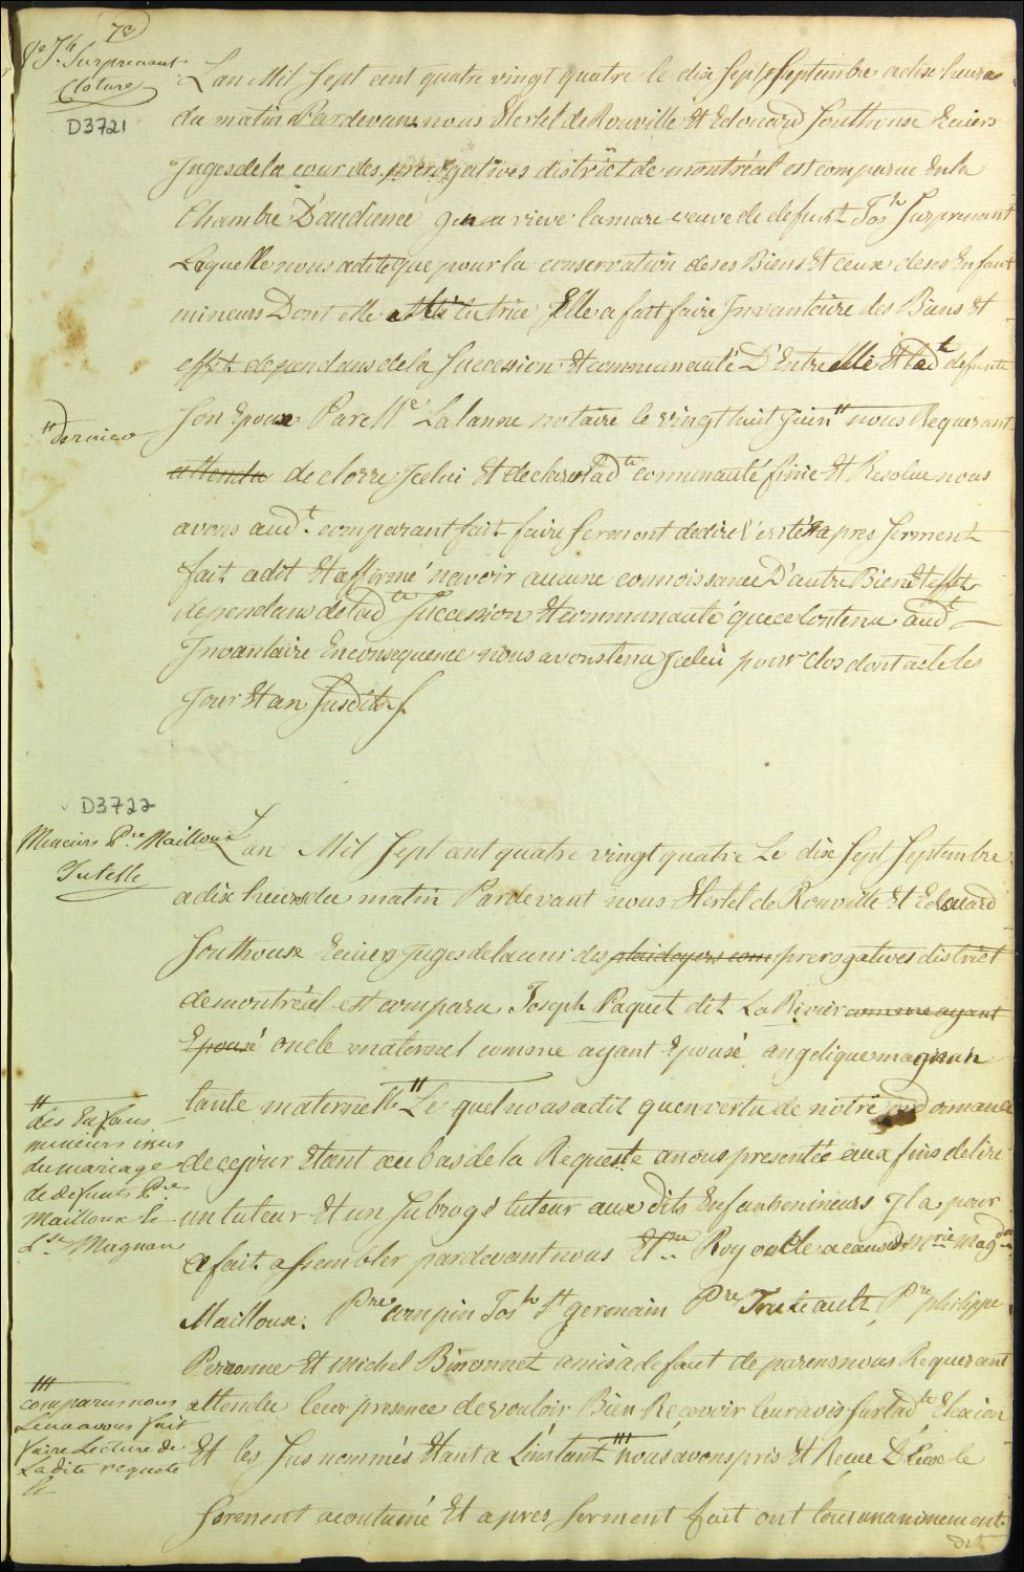 73
Jh. Surprenant
Cloture
D3721
Lan Mil Sept cent quatre vingt quatre le dix Sept Septembre a dix heures
du matin Pardevant nous Hertel de Rouville Et Edouard Southouse Ecuiers
Juges de la cour des prerogatives district de montréal est comparue En la
Chambre D'audiance genevieve lamare veuve de defunt Josh Surprenant
Laquelle nous a dit que pour la conservation de ses Biens Et ceux de ses Enfant
mineurs Dont elle est tutrice Elle a fait faire Inventaire des Biens Et
effet dependans de la Succession Et communauté D'Entre elle Et led.t defunt
Son Epoux Par Me Lalanne notaire le vingt huit juin " nous Requerant
" dernier
attendu de clorre Icelui Et declarer lad.te communauté finie Et Resolue nous
avons aud.t comparant fait faire Serment de dire vérité Et apres Serment
fait a dit Et affirmé n'avoir aucune connoissance D'autre Biens Et effet
dependans de lad.te Succession Et communauté que ce Contenu aud.t
Inventaire En consequence nous avons tenu Icelui pour Clos dont acte les
Jour Et an Susdits
D3722
Mineurs P.re Mailloux
Tutelle
Lan Mil Sept cent quatre vingt quatre Le dix Sept Septembre
a dix heures du matin Pardevant nous Hertel de Rouville Et Edouard
Southouse Ecuiers Juges de la cour des plaidoyers com prerogatives district
de montréal est comparu Joseph Paquet dit La Riviere comme ayant
Epousé oncle maternel comme ayant Epousé angelique magnan
tante maternelle " Le quel nous a dit qu'en vertu de notre ordonnance
" des Enfans
mineurs issus
du mariage
de defunts P.re
Mailloux Et
L.se Magnan
de ce jour Etant au bas de la Requeste a nous presentée aux fins delire
un tuteur Et un Subrogé tuteur aux dits Enfants mineurs Il a pour
ce fait assembler pardevant nous Et.ne Roy oncle a cause de M.rie Mag.ne
Mailloux. P.re campin Jos.h S.t germain P.re Truteault, P.re philippe
Peronne Et Michel Binonnet amis a defaut de parens nous Requerant
attendu leur presence de vouloir Bien Recevoir leur avis Sur lad.te Election
Et les Sus nommés Etant a L'instant ''' nous avons pris Et Recue D'Eux le
''' comparus nous
Leur avons fait
faire Lecture de
La dite requete
Serment acoutumé Et apres Serment fait ont tous unanimement
dit